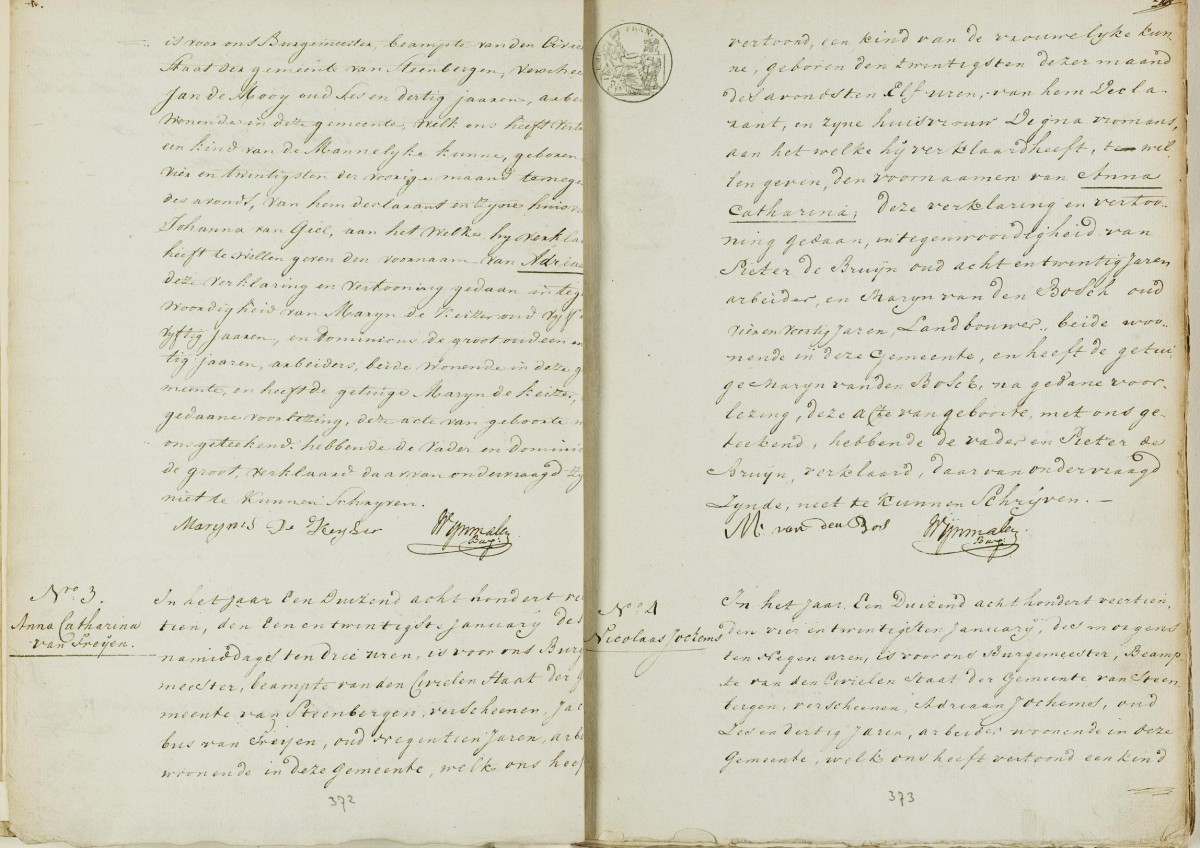 is voor ons Burgemeester, beampte van den
Staat der gemeente van Steenbergen, verschee
Jan de Mooy oud Ses en dertig jaaren, arbei
Wonende in deze gemeente, welk ons heeft verto
een kind van de Mannelyke kunne, geboren
vier en twintigsten der voorige maand
des avonds, van hem declarant en Zyne huisv
Johanna van Giel, aan het welke hy verkla
heeft te willen geven den voornaam van Adria
deze verklaring en vertooning gedaan in teg
woordigheid van Maryn de Keizer oud vyf
vyftig jaaren, en Dominicus de groot oud een en
tig jaaren, arbeiders, beide Wonende in deze g
meente, en heeft de getuige Maryn de Keizer,
gedaane voorlezing, deze acte van geboorte m
ons geteekend. hebbende de Vader en Domini
de groot, verklaard daar van ondervraagd zy
niet te Kunnen Schryven.
Marynis De Keyser
Wijnmalen
Burg:
Nro. 3.
Anna Catharina
van Freijen.
In het Jaar Een Duizend acht hondert ve
tien, den Een en twintigste January de
namiddags ten drie uren, is voor ons Burg
meester, beampte van den Civielen Staat der g
meente van Steenbergen, verscheenen, Jac
bus van Freijen, oud Negentien Jaren, arbe
woonende in deze Gemeente, welk ons heef
372
vertoond, een kind van de vrouwelyke kun
ne, geboren den twintigsten dezer maand
des avonds ten Elf uren, van hem Decla-
rant, en zyne huisvrouw Degna vromans,
aan het welke hij verklaard heeft, te wil
len geven, den voornaamen van Anna
Catharina; deze verklaring en vertoo-
ning gedaan, in tegenwoordigheid van
Pieter de Bruijn oud acht en twintig Jaren
arbeider, en Maryn van den Bosch oud
vier en veertig Jaren, Landbouwer, beide woo-
nende in deze Gemeente, en heeft de getui
ge Maryn van den Bosch, na gedane voor-
lezing, deze acte van geboorte, met ons ge-
teekend, hebbende de vader en Pieter de
Bruijn, verklaard, daar van ondervraagd
Zynde, niet te Kunnen Schrijven. -
M. van den Bos
Wijnmalen
Burg:
Nro. 4
Nicolaas Jochems
In het Jaar Een Duizend acht hondert veertien,
den vier en twintigsten January, des morgens
ten Negen uren, is voor ons Burgemeester, Beamp
te van den Civielen Staat der Gemeente van Steen
bergen, verscheenen, Adriaan Jochems, oud
Zes en dertig Jaren, arbeider woonende in deze
Gemeente, welk ons heeft vertoond een kind
373